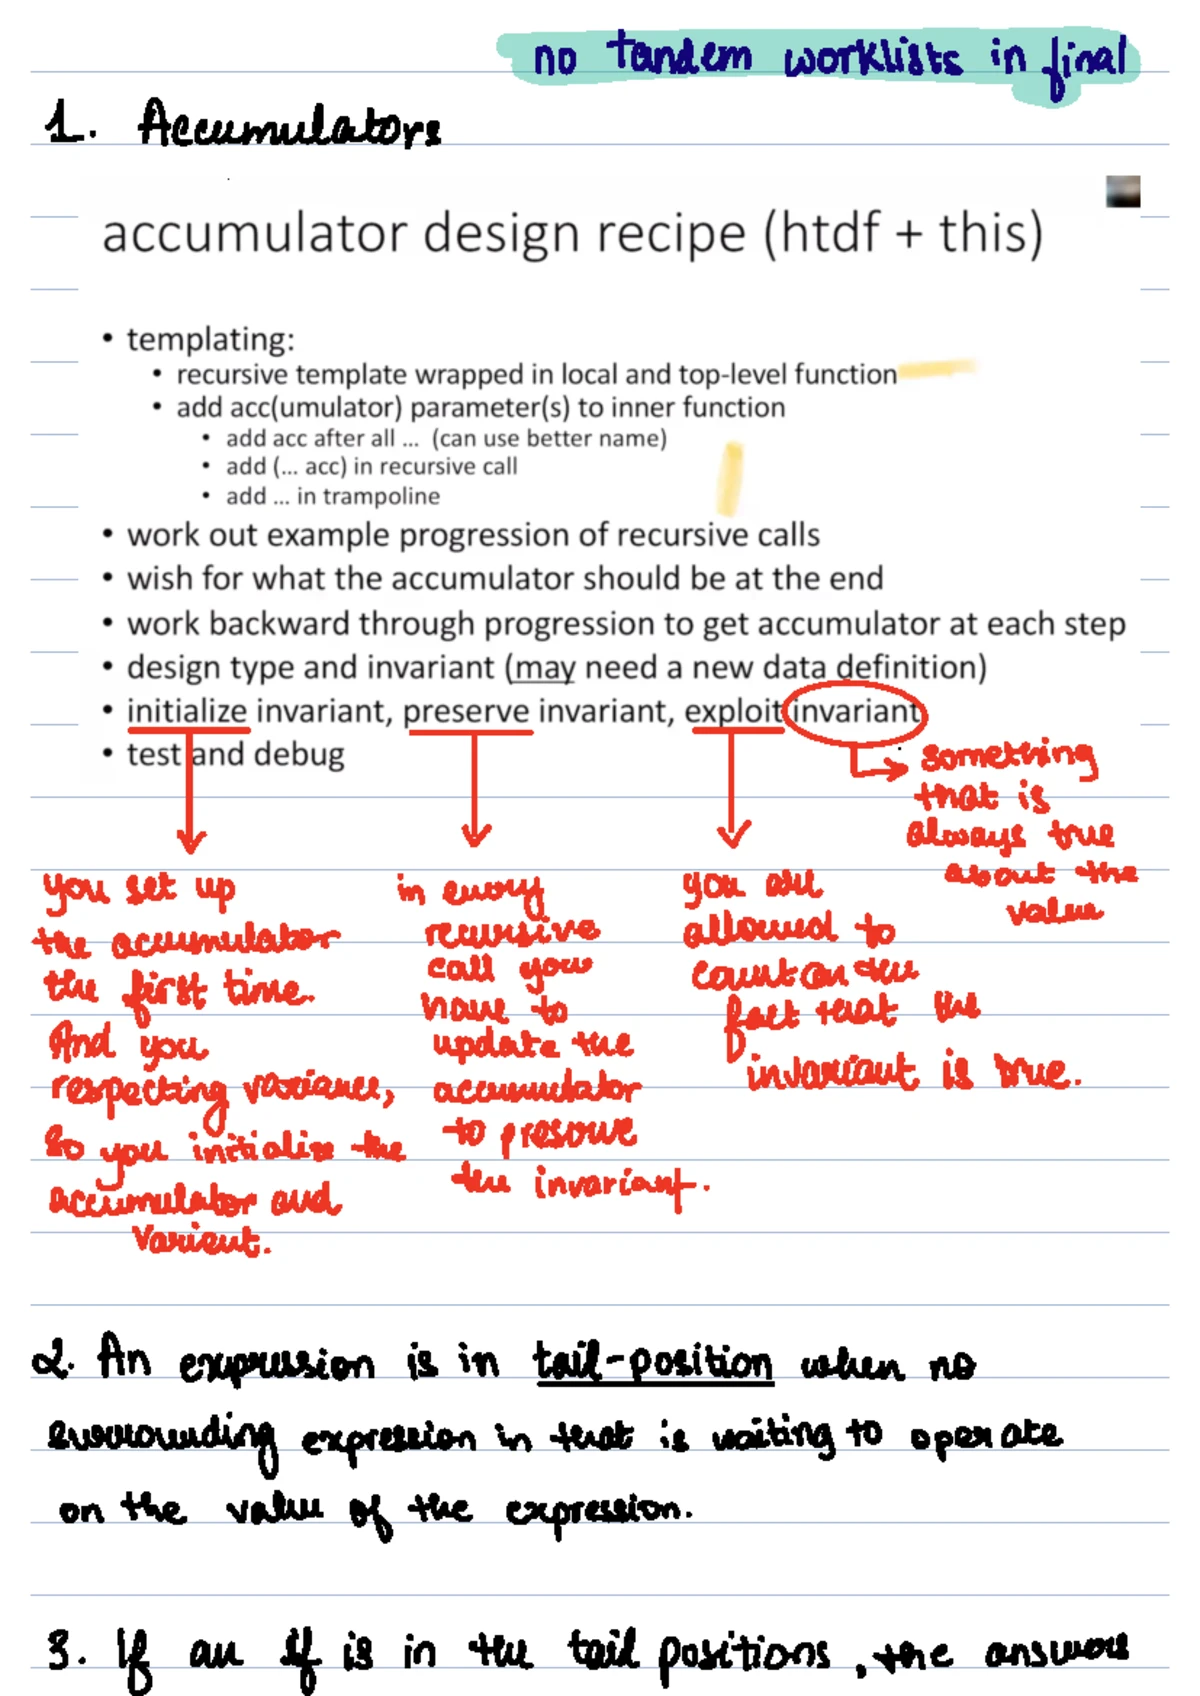 no tandem worklists in final
1. Accumulators
accumulator design recipe (htdf + this)
• templating:
• recursive template wrapped in local and top-level function
• add acc(umulator) parameter(s) to inner function
• add acc after all ... (can use better name)
• add (... acc) in recursive call
• add ... in trampoline
• work out example progression of recursive calls
• wish for what the accumulator should be at the end
• work backward through progression to get accumulator at each step
• design type and invariant (may need a new data definition)
• initialize invariant, preserve invariant, exploit invariant
• test and debug
something
that is
always true
about the
value
you set up
the accumulator
the first time.
And you
respecting variance,
so you initialize the
accumulator and
varient.
in every
recursive
call you
have to
update the
accumulator
to preserve
the invariant.
you are
allowed to
count on the
fact that the
invariant is true.
2. An expression is in tail-position when no
surrounding expression in that is waiting to operate
on the value of the expression.
3. If an if is in the tail positions, the answers